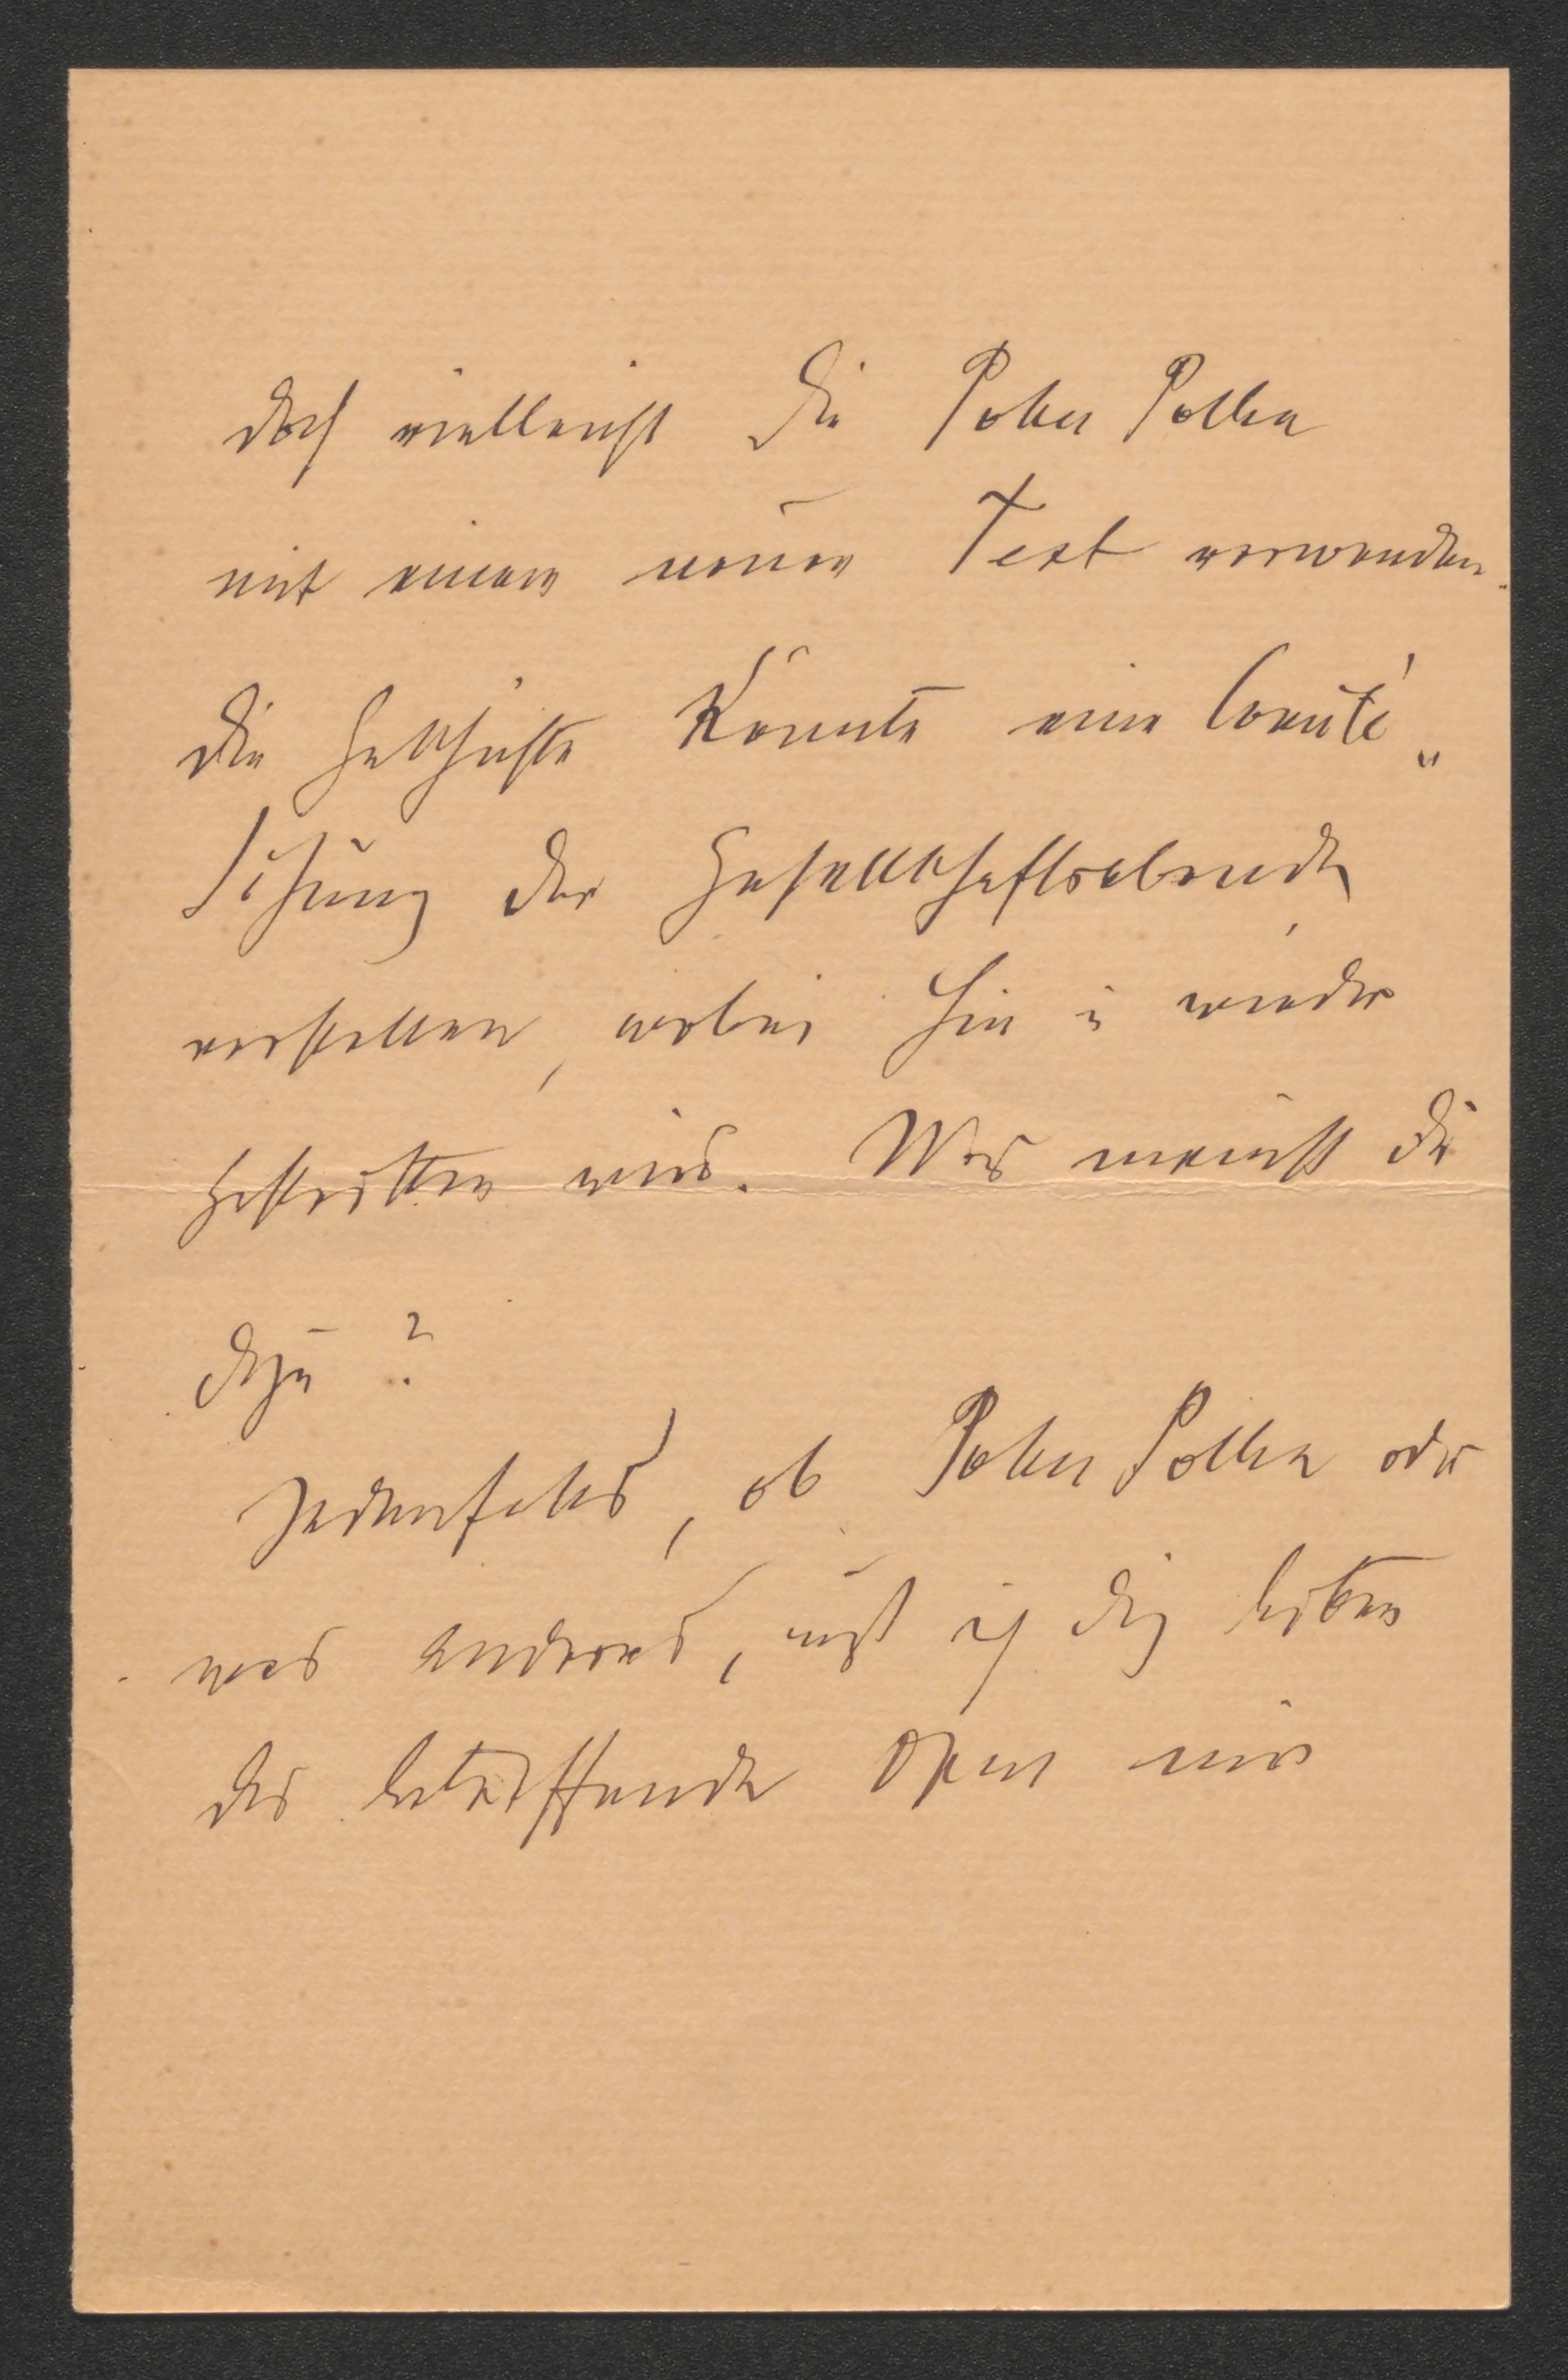 doch vielleicht die Poker Polka
mit einem neuen Text verwenden.
Die Geschichte könnte eine Comité„
Sitzung der Gesellschaftsabende
vorstellen, wobei hin u wieder
gestritten wird. Was meinst Du
dazu?
Jedenfalls, ob Poker Polka oder
was anderes, muß ich Dich bitten
das betreffende Opus mir